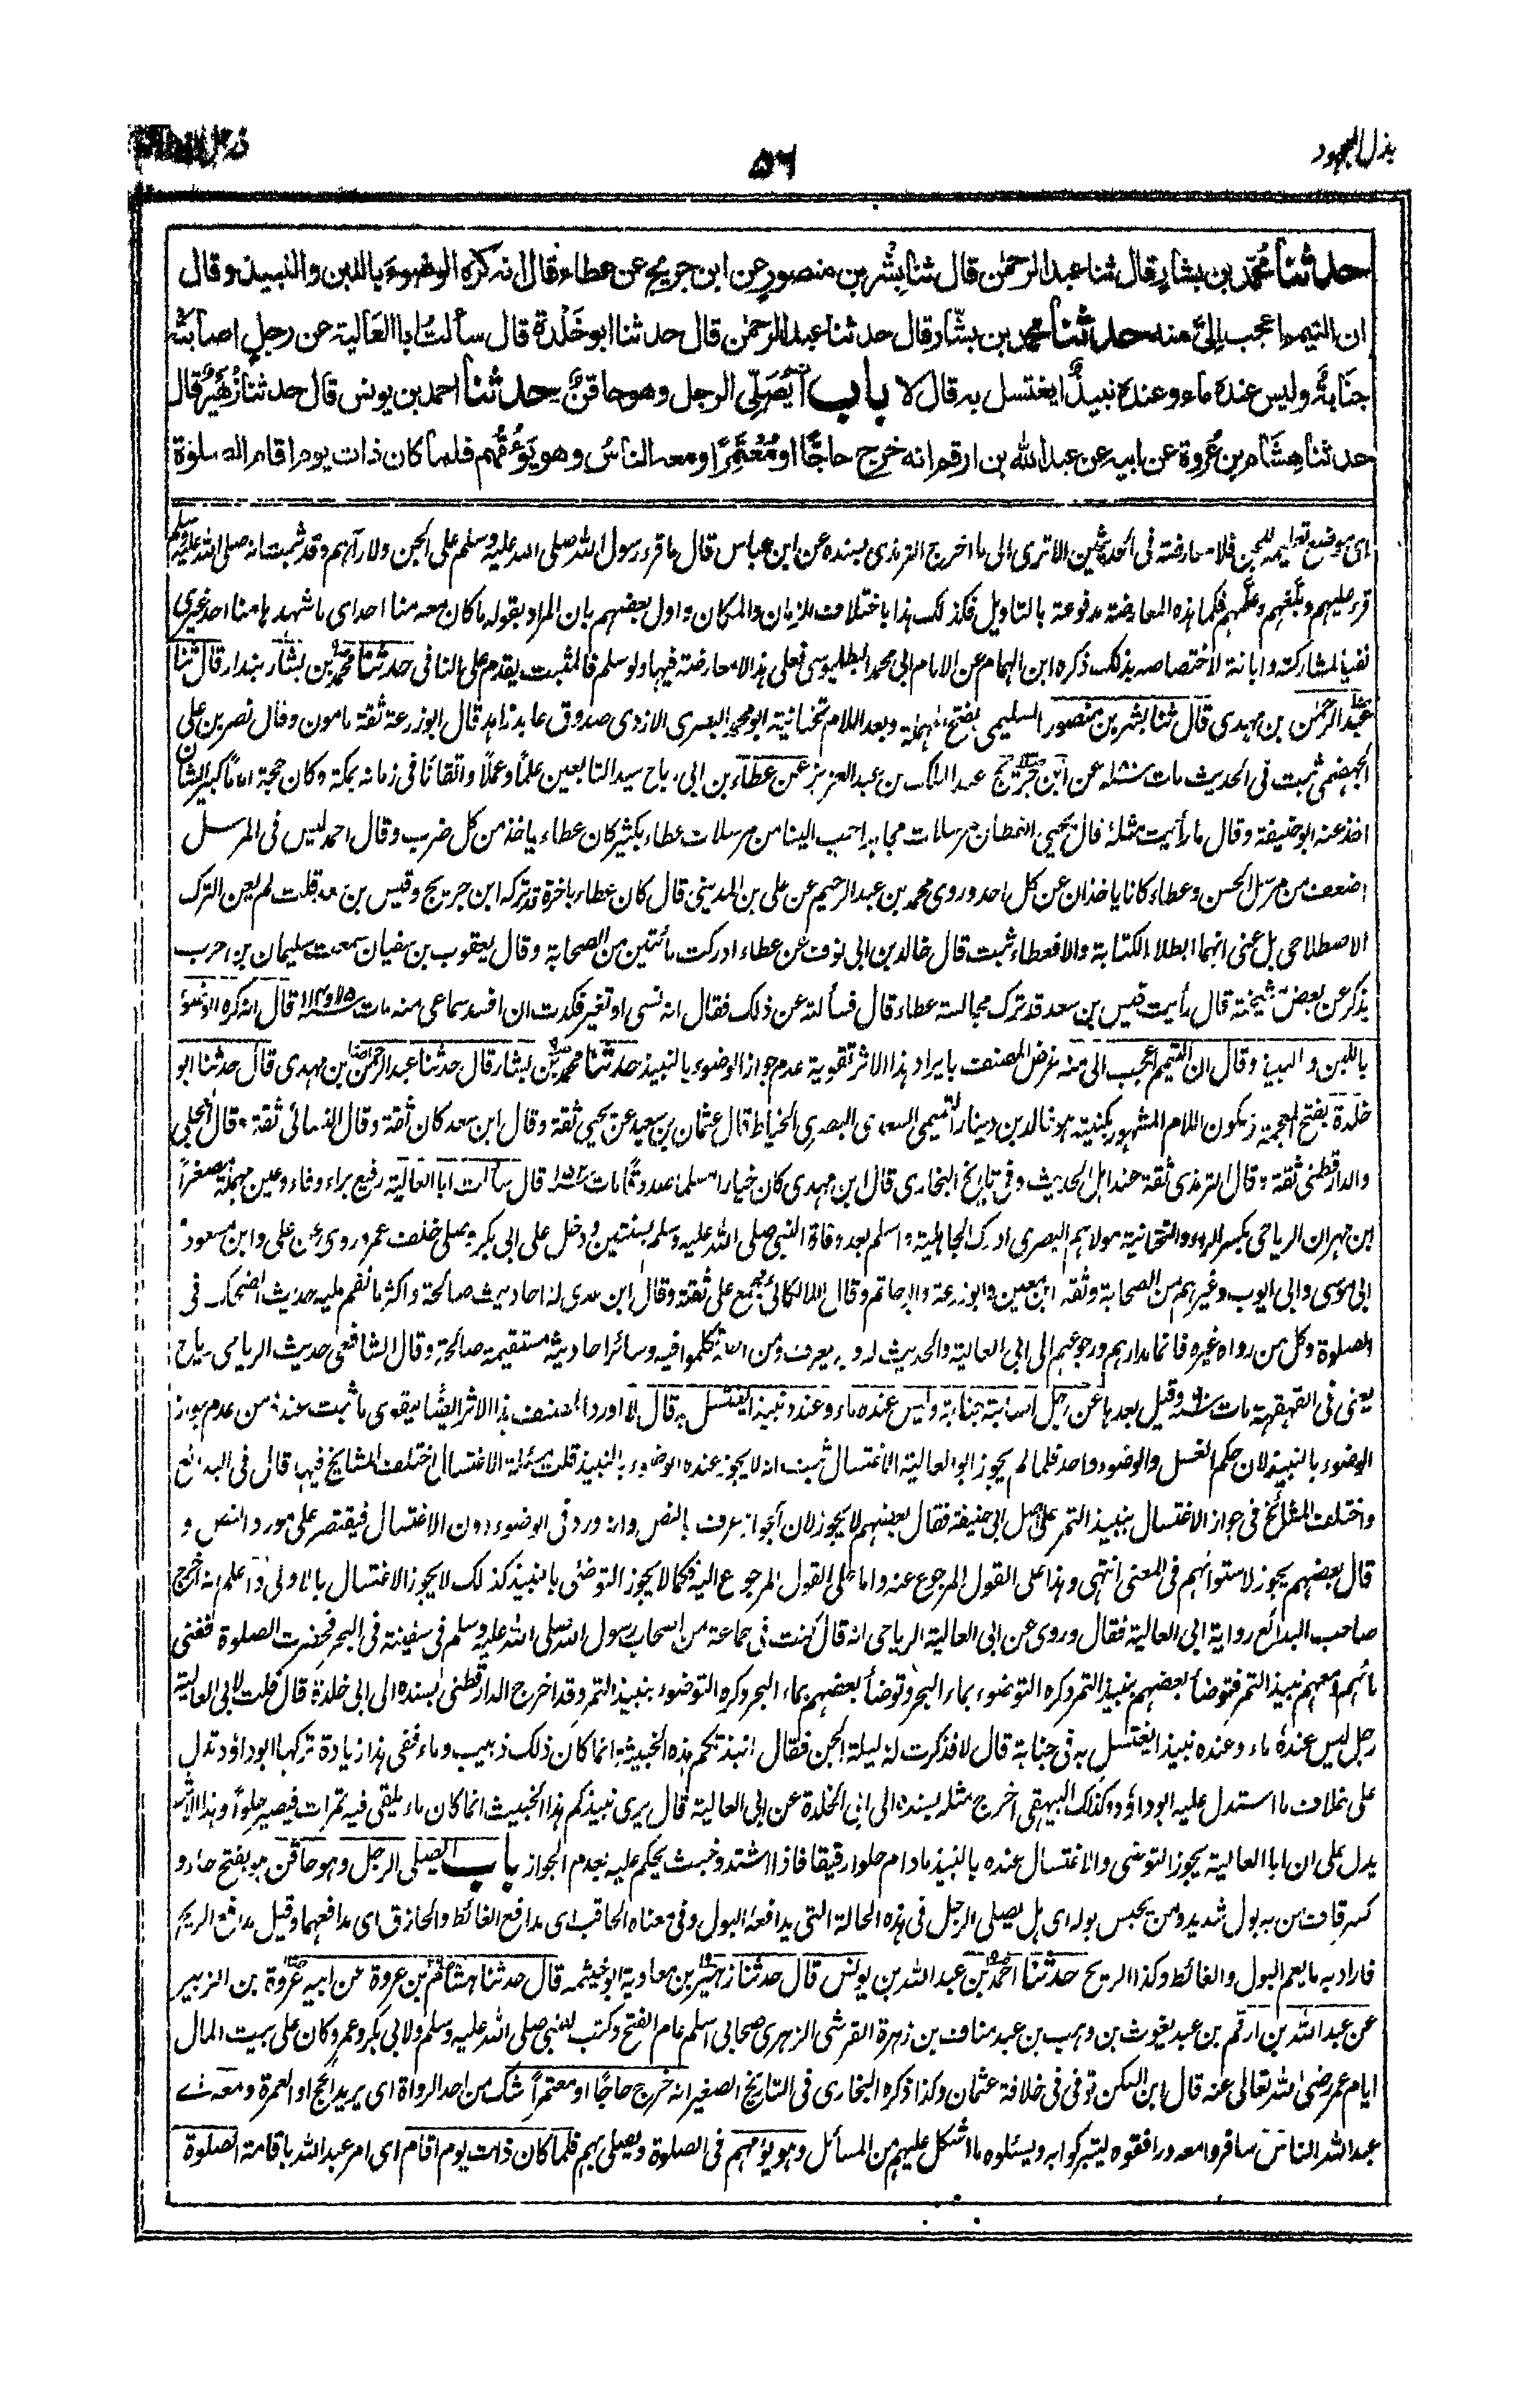 بذل المجهود
٥٦
حدثنا محمد بن بشار قال ثنا عبد الرحمن قال ثنا بشر بن منصور عن ابن جريج عن عطاء قال انه كره الوضوء باللبن والنبيذ وقال
ان التيمم اعجب الى منه حدثنا محمد بن بشار قال حدثنا عبد الرحمن قال حدثنا ابو خلدة قال سألت ابا العالية عن رجل اصابته
جنابة وليس عنده ماء وعنده نبيذ ايغتسل به قال لا باب ايصلى الرجل وهو حاقن حدثنا احمد بن يونس قال حدثنا زهير قال
حدثنا هشام بن عروة عن ابيه عن عبد الله بن ارقم انه خرج حاجا او معتمرا ومعه الناس وهو يؤمهم فلما كان ذات يوم اقام الصلوة
فلا معارضته فى الحديثين الا ترى الى ما اخرج الترمذى بسنده عن ابن عباس قال ما قرء رسول الله صلى الله عليه وسلم على الجن ولا رآهم وقد ثبت انه صلى الله عليه وسلم
قرء عليهم وبلغهم وعلمهم فكما هذه المعارضة مدفوعة بالتاويل فكذلك هذا باختلاف الزمان والمكان واول بعضهم بان المراد بقوله ما كان معه منا احد اى ما شهدها منا احد غيرى
نفيا لمشاركته وابانة لاختصاصه بذلك ذكره ابن الهمام عن الامام ابى محمد البطليوسى فعلى هذا لا معارضة فيها ولو سلم فالمثبت يقدم على النافى حدثنا محمد بن بشار بندار قال ثنا
عبد الرحمن بن مهدى قال ثنا بشر بن منصور السليمى بفتح مهملة وبعد اللام تحتانية ابو محمد البصرى الازدى صدوق عابد زاهد قال ابو زرعة ثقة مامون وقال نصر بن على
الجهضمى ثبت فى الحديث مات سنة عن ابن جريج عبد الملك بن عبد العزيز عن عطاء بن ابى رباح سيد التابعين علما وعملا واتقانا فى زمانه بمكة وكان حجة اماما كبير الشان
اخذ عنه ابو حنيفة وقال ما رأيت مثله قال يحيى القطان مرسلات مجاهد احب الينا من مرسلات عطاء بكثير كان عطاء ياخذ من كل ضرب وقال احمد ليس فى المرسل
اضعف من مرسل الحسن وعطاء كانا ياخذان عن كل احد وروى محمد بن عبد الرحيم عن على بن المدينى قال كان عطاء باخرة قد تركه ابن جريج وقيس بن سعد قلت لم يعن الترك
الاصطلاحى بل عنى انهما ابطلا الكتابة والا فعطاء ثبت قال خالد بن ابى نوف عن عطاء ادركت مأئتين من الصحابة وقال يعقوب بن سفيان سمعت سليمان بن حرب
يذكر عن بعض مشيخته قال رأيت قيس بن سعد قد ترك مجالسة عطاء قال فسألته عن ذلك فقال انه نسى او تغير فكدت ان افسد سماعى منه مات قال انه كره الوضوء
باللبن والنبيذ وقال ان التيمم اعجب الى منه غرض المصنف بايراد هذا الاثر تقوية عدم جواز الوضوء بالنبيذ حدثنا محمد بن بشار قال حدثنا عبد الرحمن بن مهدى قال حدثنا ابو
خلدة بفتح المعجمة وسكون اللام المشهور بكنيته هو خالد بن دينار التميمى السعدى البصرى الخياط قال عثمان بن سعيد عن يحيى ثقة وقال ابن سعد كان ثقة وقال النسائى ثقة وقال العجلى
والدارقطنى ثقة وقال الترمذى ثقة عند اهل الحديث وفى تاريخ البخارى قال ابن مهدى كان خيارا مسلما صدوقا مات قال سألت ابا العالية رفيع براء وفاء وعين مهملة مصغرا
ابن مهران الرياحى بكسر الراء والتحتانية مولاهم البصرى ادرك الجاهلية واسلم بعد وفاة النبى صلى الله عليه وسلم بسنتين ودخل على ابى بكر وصلى خلف عمر وروى عن على وابن مسعود
ابى موسى وابى ايوب وغيرهم من الصحابة وثقه ابن معين وابو زرعة وابو حاتم وقال اللالكائى مجمع على ثقته وقال ابن عدى له احاديث صالحة واكثر ما نقم عليه حديث الضحك فى
الصلوة وكل من رواه غيره فانما مدارهم ورجوعهم الى ابى العالية والحديث له وبه يعرف ومن اجله تكلموا فيه وسائر احاديثه مستقيمة صالحة وقال الشافعى حديث الرياحى رياح
يعنى فى القهقهة مات وقيل بعدها عن رجل اصابته جنابة وليس عنده ماء وعنده نبيذ ايغتسل به قال لا اورد المصنف هذا الاثر ايضا ليقوى ما ثبت عنده من عدم جواز
الوضوء بالنبيذ لان حكم الغسل والوضوء واحد فلما لم يجوز ابو العالية الاغتسال ثبت انه لا يجوز عنده الوضوء بالنبيذ قلت مسئلة الاغتسال اختلف المشايخ فيها قال فى البدائع
واختلف المشائخ فى جواز الاغتسال بنبيذ التمر على اصل ابى حنيفة فقال بعضهم لا يجوز لان الجواز عرف بالنص وانه ورد فى الوضوء دون الاغتسال فيقتصر على مورد النص و
قال بعضهم يجوز لاستوائهم فى المعنى انتهى وهذا على القول المرجوع عنه واما على القول المرجوع اليه فكما لا يجوز التوضى بالنبيذ كذلك لا يجوز الاغتسال بالاولى واعلم انه اخرج
صاحب البدائع رواية ابى العالية فقال وروى عن ابى العالية الرياحى انه قال كنت فى جماعة من اصحاب رسول الله صلى الله عليه وسلم فى سفينة فى البحر فحضرت الصلوة ففنى
مائهم ومعهم نبيذ التمر فتوضأ بعضهم بنبيذ التمر وكره التوضوء بماء البحر وتوضأ بعضهم بماء البحر وكره التوضوء بنبيذ التمر وقد اخرج الدارقطنى بسنده الى ابى خلدة قال قلت لابى العالية
رجل ليس عنده ماء وعنده نبيذ ايغتسل به فى جنابة قال لا فذكرت له ليلة الجن فقال انبذتكم هذه الخبيثة انما كان ذلك زبيب وماء ففى هذا زيادة تركها ابو داؤد تدل
على خلاف ما استدل عليه ابو داؤد وكذلك البيهقى اخرج مثله بسنده الى ابى الخلدة عن ابى العالية قال يرى نبيذكم هذا الخبيث انما كان ماء يلقى فيه تمرات فيصير حلوا وهذا الاثر
يدل على ان ابا العالية يجوز التوضى والاغتسال عنده بالنبيذ ما دام حلوا رقيقا فاذا اشتد وخبث يحكم عليه بعدم الجواز باب ايصلى الرجل وهو حاقن هو بفتح حاء و
كسر قاف من به بول شديد ومن يحبس بوله اى هل يصلى الرجل فى هذه الحالة التى يدافعه البول وفى معناه الحاقب اى مدافع الغائط والحازق اى مدافعهما وقيل مدافع الريح
فاراد به ما يعم البول والغائط وكذا الريح حدثنا احمد بن عبد الله بن يونس قال حدثنا زهير بن معاوية ابو خيثمه قال حدثنا هشام بن عروة عن ابيه عروة بن الزبير
عن عبد الله بن ارقم بن عبد يغوث بن وهيب بن عبد مناف بن زهرة القرشى الزهرى صحابى اسلم عام الفتح وكتب للنبى صلى الله عليه وسلم ولابى بكر وعمر وكان على بيت المال
ايام عمر رضى الله تعالى عنه قال ابن السكن توفى فى خلافة عثمان وكذا ذكره البخارى فى التاريخ الصغير انه خرج حاجا او معتمرا شك من احد الرواة اى يريد الحج او العمرة ومعه
عبد الله الناس سافروا معه ورافقوه ليتبركوا به ويسئلوه ما اشكل عليهم من المسائل وهو يؤمهم فى الصلوة ويصلى بهم فلما كان ذات يوم اقام اى امر عبد الله باقامة الصلوة